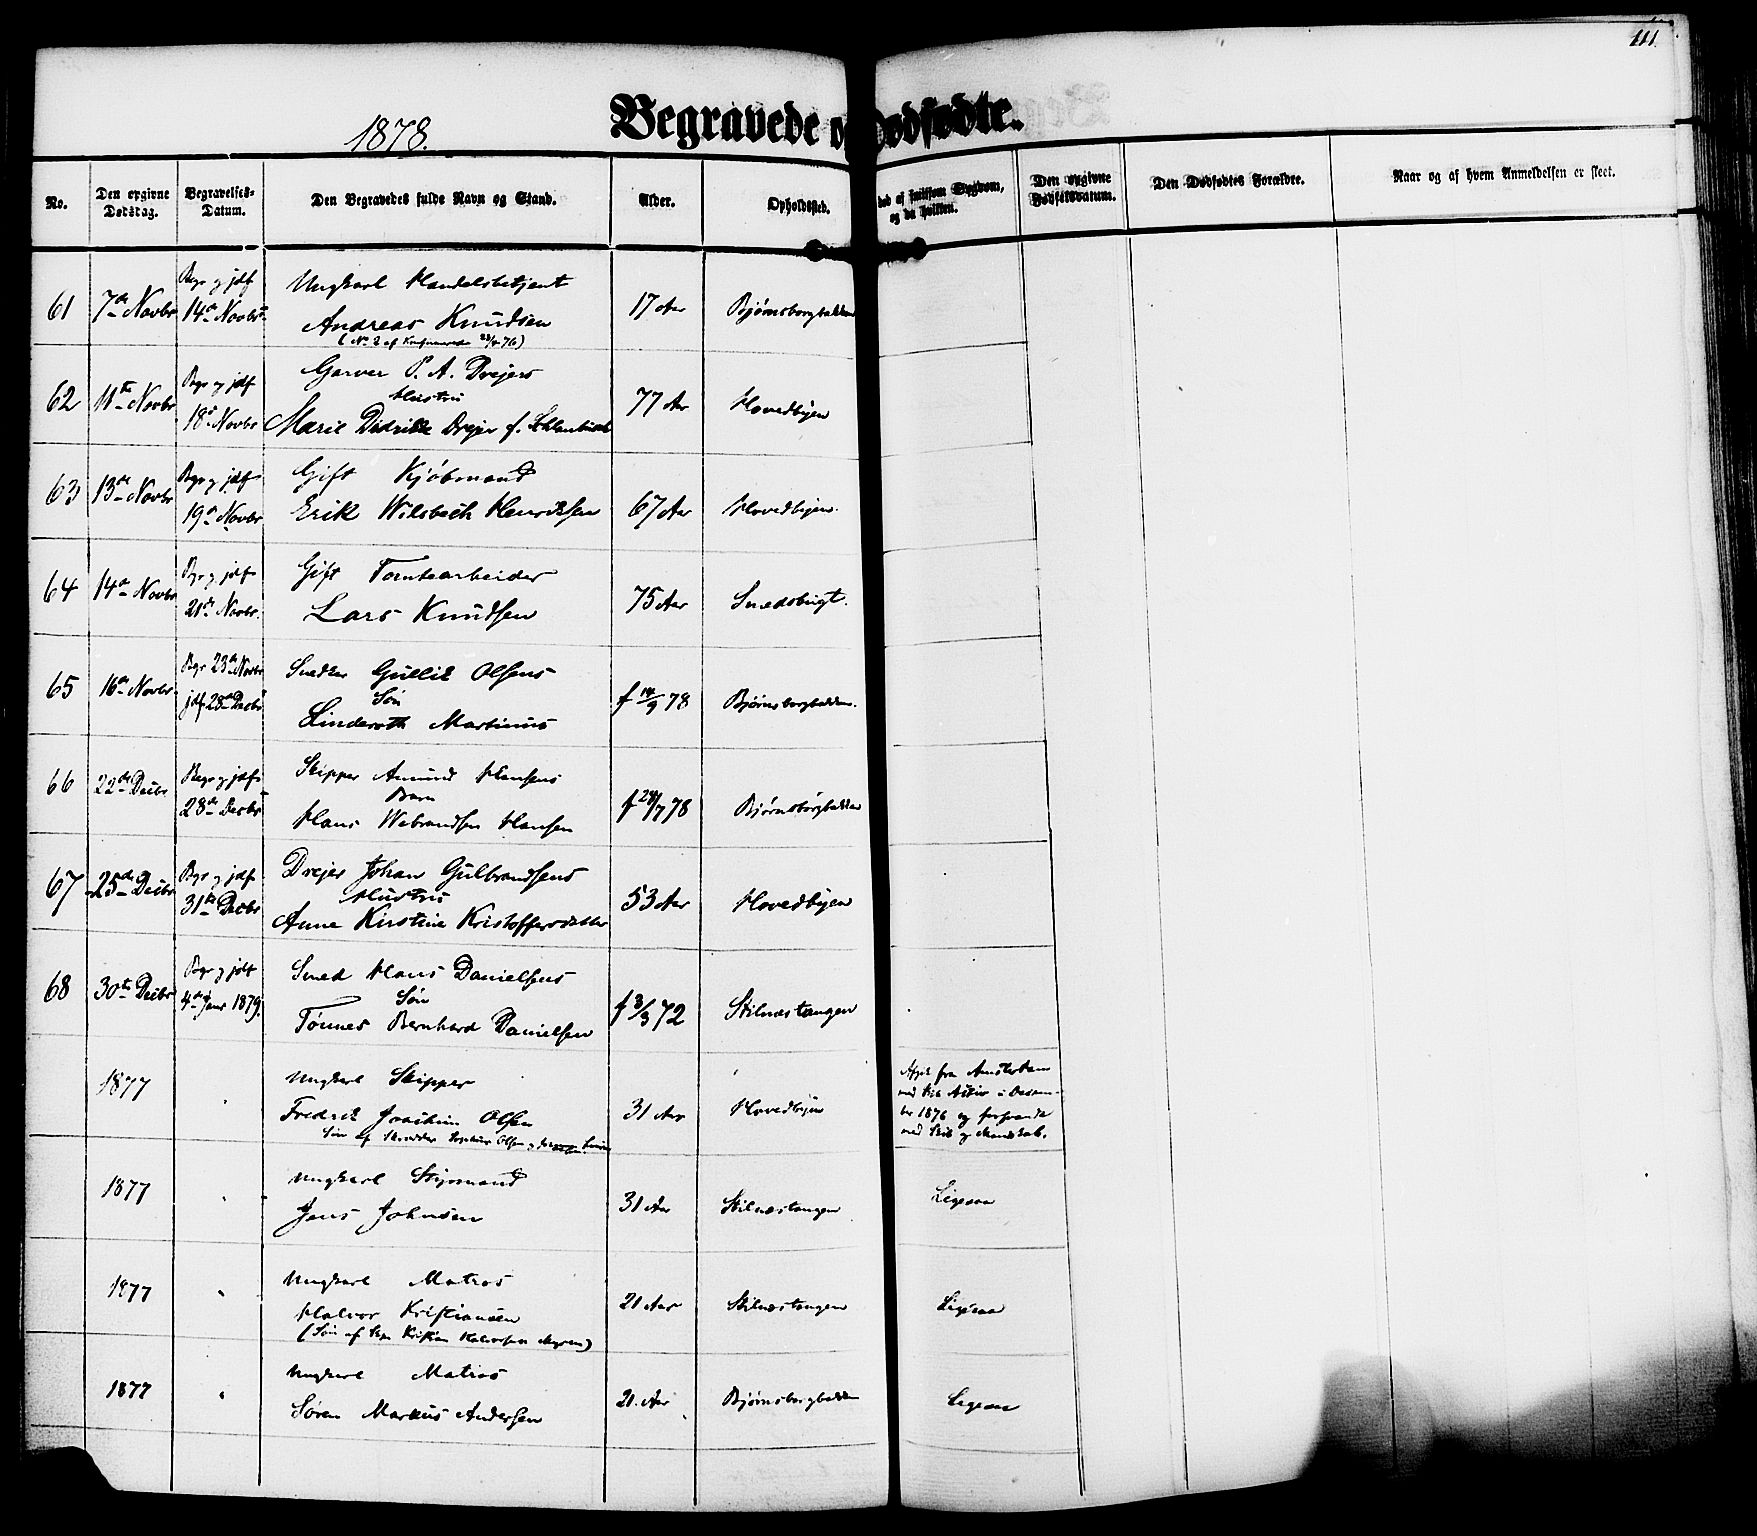 111.
1878.
Begravede o Dødfødte.
No.
Den opgivne Dødsdag.
Begravelses-Datum.
Den Begravedes fulde Navn og Stand.
Alder.
Opholdssted.
død af smitsom Sygdom, og da hvilken.
Den opgivne Fødselsdatum.
Den Dødfødtes Forældre.
Naar og af hvem Anmeldelsen er skeet.
61 7de Novbr Begr og jdf 14de Novbr Ungkarl Handelsbetjent
Andreas Knudsen 17 Aar Bjørnsborgbakken
(No 2 af Konfirmerede 23/4 76)
62 11te Novbr Begr og jdf 18de Novbr Garver P. A. Drejers
Hustru
Marie Didrikke Drejer f. 77 Aar Hovedbyen
63 13de Novbr Begr og jdf 19de Novbr Gift Kjøbmand
Erik Wilsbech Henriksen 67 Aar Hovedbyen.
64 14de Novbr Begr og jdf 21de Novbr. Gift Tomtearbeider
Lars Knudsen 75 Aar Snedsbugt.
65 16de Novbr Begr 23de Novbr jdf 28de Decbr Snedker Gullik Olsens
Søn
Linderoth Martinius f 14/9 78 Bjørnsborgbakken.
66 22de Decbr Begr og jdf 28de Decbr Skipper Amund Hansens
Barn
Hans Webrandsen Hansen f 24/7 78 Bjørnsborgbakken
67 25de Decbr Begr og jdf 31te Decbr Drejer Johan Gulbrandsens
Hustru
Anne Kirstine Kristoffersdatter 53 Aar Hovedbyen
68 30te Decbr Begr og jdf 4de Janr 1879. Smed Hans Danielsens
Søn
Tønnes Bernhard Danielsen f 3/3 72 Stilnæstangen
1877 " Ungkarl Skipper
Fredrik Joachim Olsen 31 Aar Hovedbyen
Søn af Skrædder Olsen og
Afgik fra Amsterdam
med Skib Aktiv i Decem-
ber 1876 og forsvandt
med Skib og Mandskab.
1877 " Ungkarl Styrmand
Jens Johnsen 31 Aar Stilnæstangen Ligesaa
1877 " Ungkarl Matros
Halvor Kristiansen 21 Aar Stilnæstangen Ligesaa
(Søn af Kristian Halvorsen Myren)
1877 " Ungkarl Matros
Søren Markus Andersen 21. Aar Bjørnsborgbakken Ligesaa